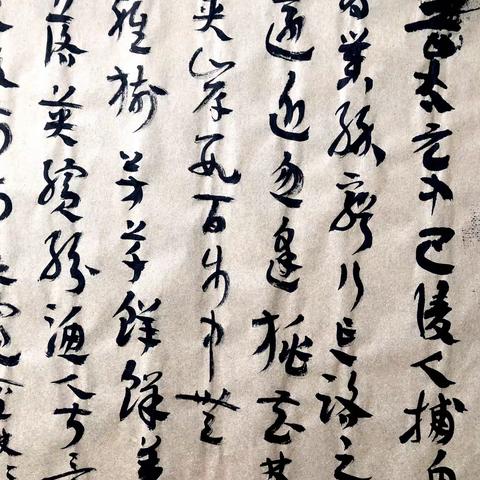 晉太元中武陵人捕魚
為業緣谿行忘路之
遠近忽逢桃花
夾岸數百步中無
雜樹芳草鮮鮮美
落英繽紛漁人甚